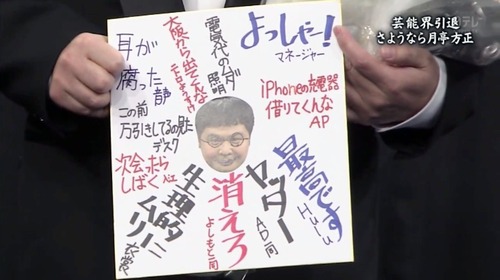 芸能界引退
さようなら月亭方正
よっしゃー!
マネージャー
電気代のムダ
照明
大阪から出てくんな
耳が
腐った
この前
万引きしてるの見た
デスク
次会ったら
しばく
iPhoneの充電器
借りてくんな
AP
最高です
Hulu
ヤッター
AD一同
消えろ
よしもと一同
生理的に
ムリー
衣裳